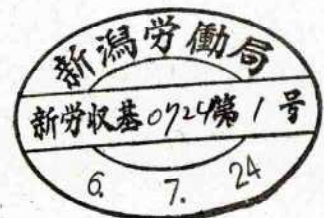 新潟労働局
新労収基0724第1号
6. 7. 24